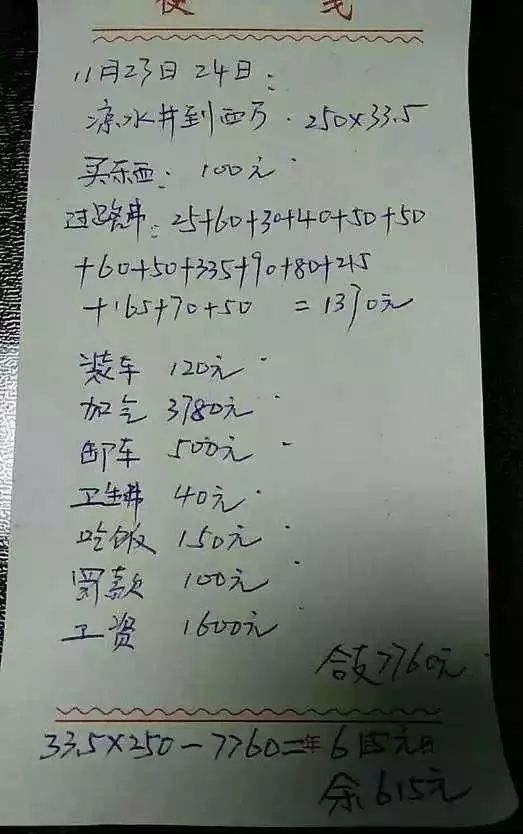 便 笺
11月23日 24日:
凉水井到西万. 250×33.5
买东西: 100元
过路费: 25+60+30+40+50+50
+60+50+335+90+80+215
+165+70+50 =1370元
装车 120元
加气 3780元
卸车 500元
卫生费 40元
吃饭 150元
罚款 100元
工资 1600元
合支7760元
33.5×250-7760=年 615元日
余:615元